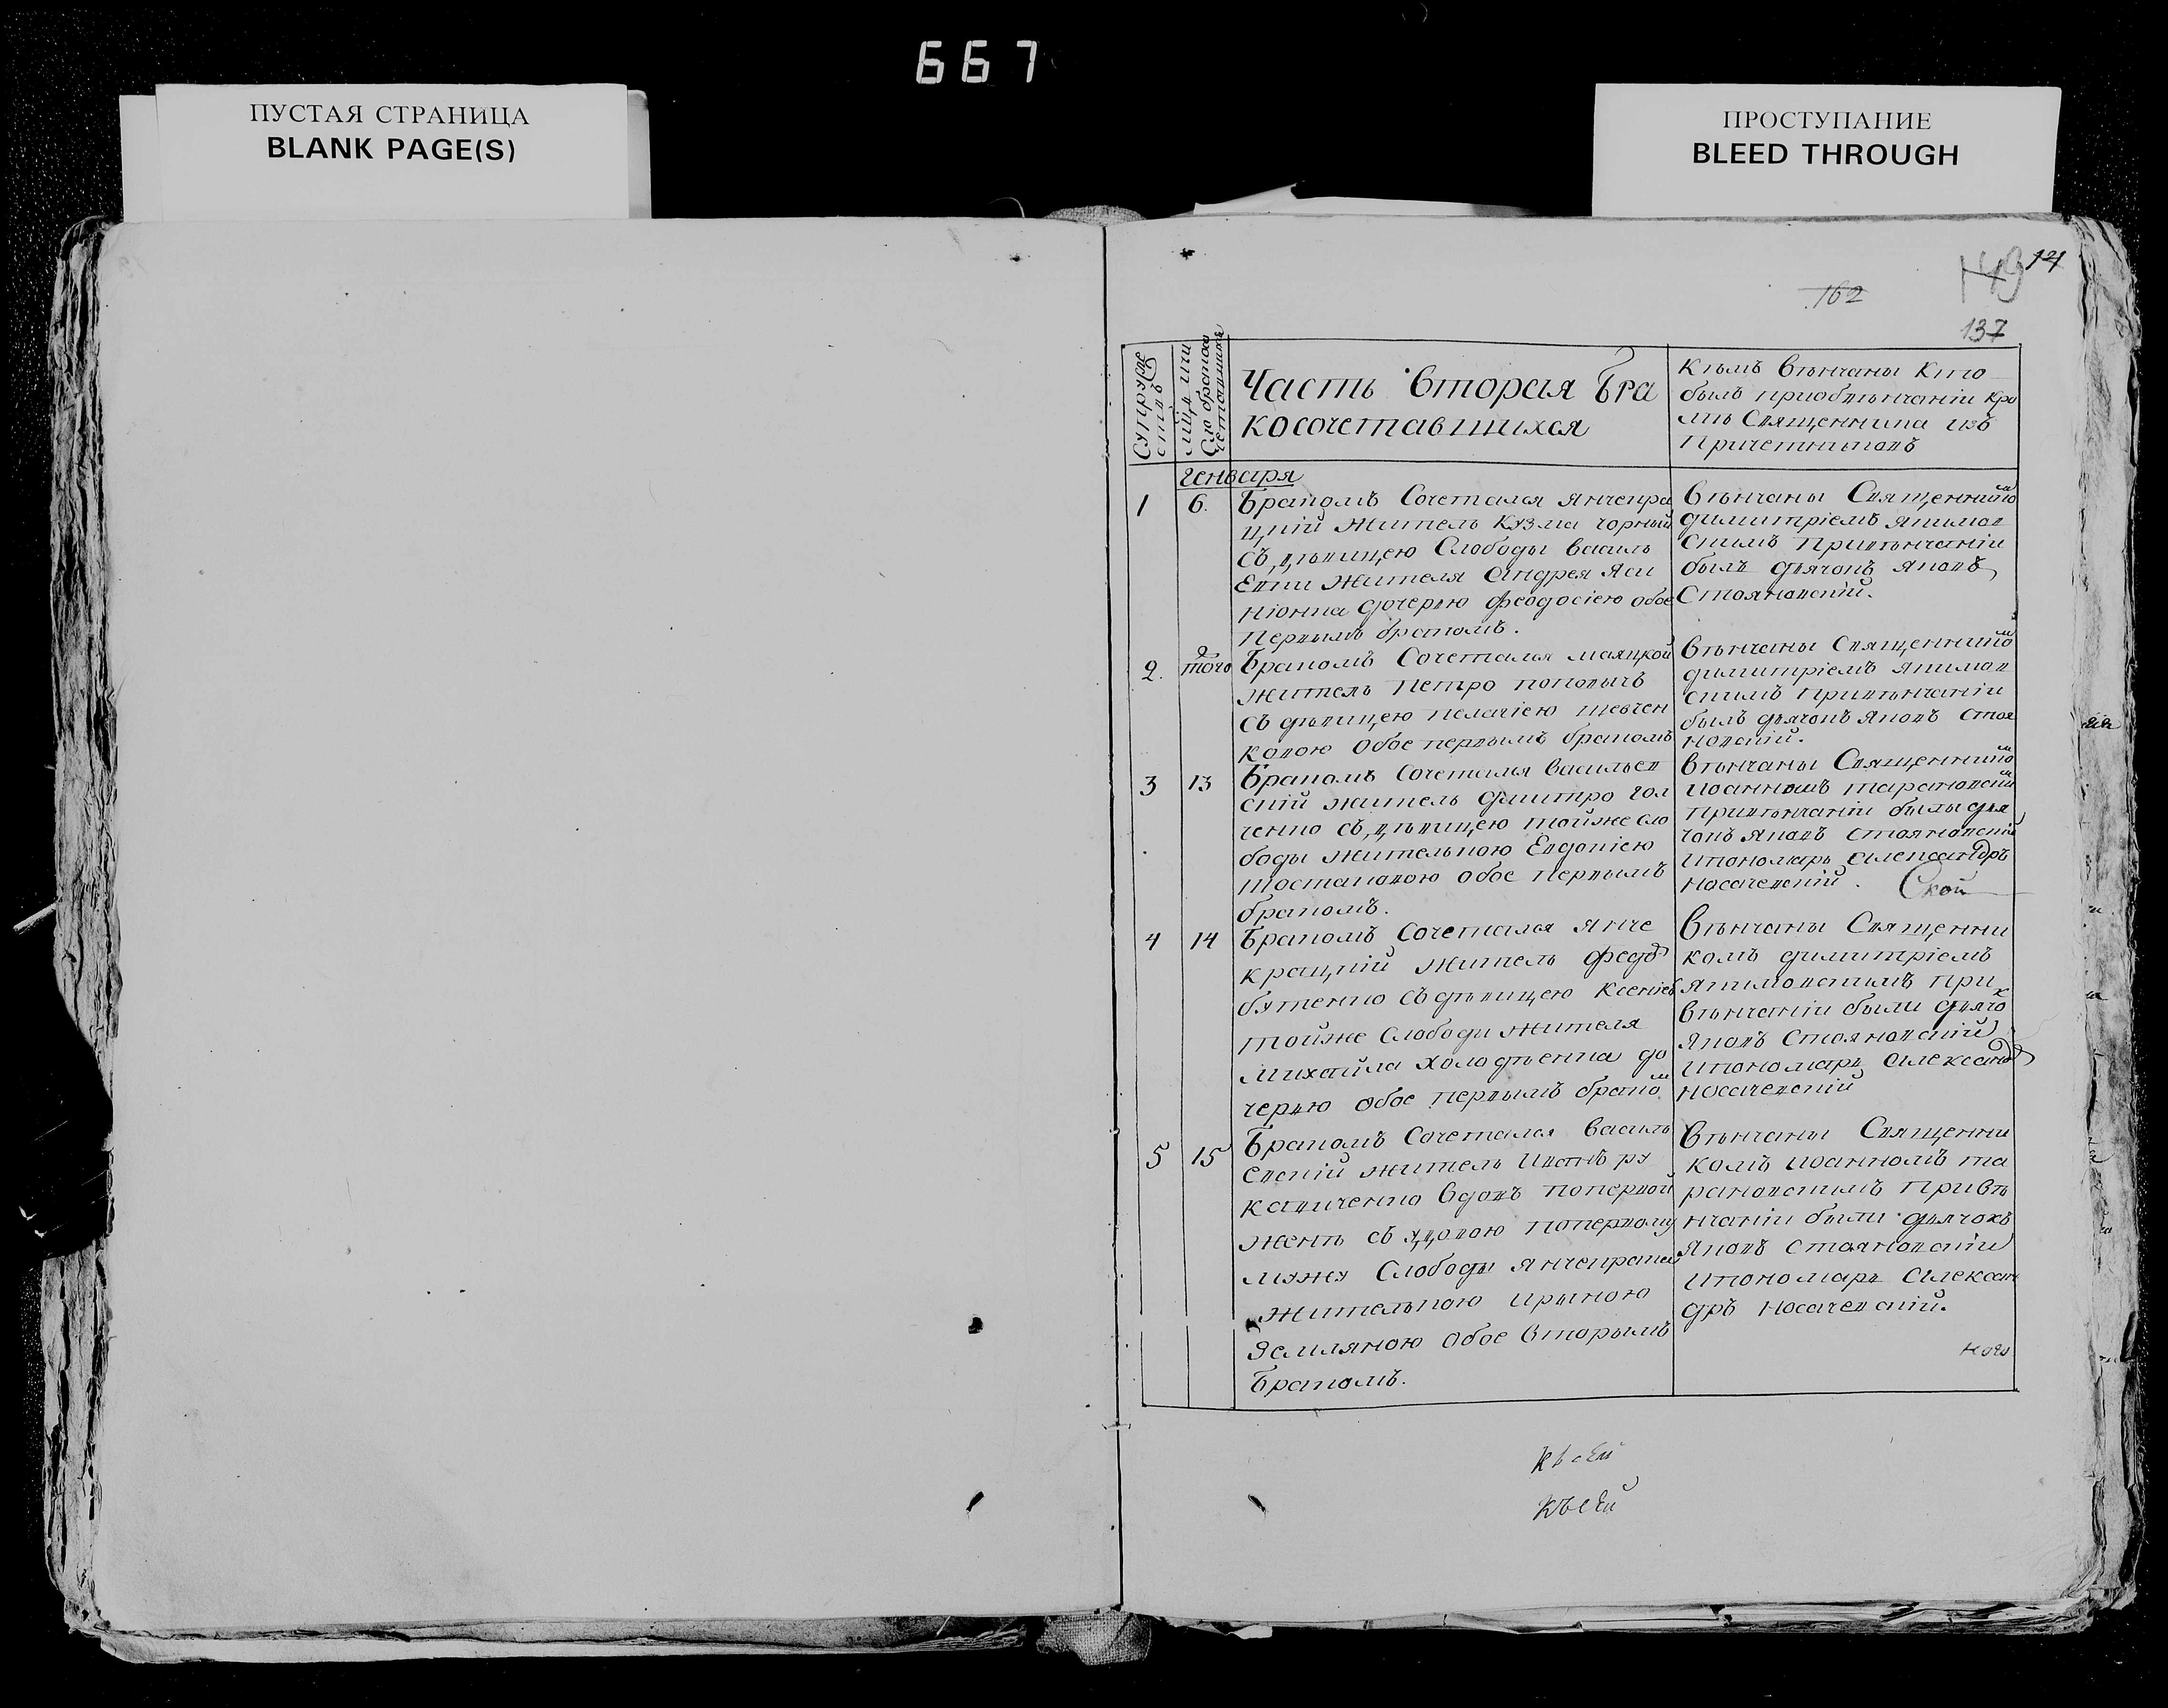 667
ПУСТАЯ СТРАНИЦА
BLANK PAGE(S)
ПРОСТУПАНИЕ
BLEED THROUGH
149
162
137
Часть вторая бра
косочетавшихся
Кѣмъ вѣнчаны Кто
былъ приобвѣнчаніи кро
мѣ Священника изъ
Причетниковъ
генваря
1
6.
Бракомъ Сочетался Янчекра
цкій житель Кузма чорный
съ дѣвицею Слободы василь
Евки жителя Андрея
дочерью феодосіею обое
Первымъ бракомъ.
Вѣнчаны Священникомъ
димитріемъ Якимов
скимъ Привѣнчаніи
былъ дьячокъ Яковъ
Стояновскій.
2.
того
Бракомъ Сочетался маяцкой
житель Петро поповычъ
съ дѣвицею пелагіею шевчен
ковою Обое первымъ бракомъ
Вѣнчаны Священникомъ
димитріемъ Якимов
скимъ Привѣнчаніи
былъ дьячокъ Яковъ стоя
новскій.
3
13
Бракомъ Сочетался Васильев
скій житель дмитро гол
ченко съ дѣвицею тойже сло
боды жителькою Евдокіею
обое Первымъ
бракомъ.
Вѣнчаны Священникомъ
Иоанномъ тарановскимъ
Привѣнчаніи были дья
чокъ Яковъ Стояновскій
Ипономарь Александръ
Носачевскій.
Ской
4
14
Бракомъ Сочетался Янче
крацкій житель федоръ
бутенко съ дѣвицею Ксеніею
тойже Слободи жителя
Михайла Холодѣенка до
черью обое первымъ бракомъ
Вѣнчаны Священни
комъ димитріемъ
Якимовскимъ При
вѣнчаніи были дьячокъ
Яковъ Стояновскій
Ипономарь Александръ
Носачевскій
5
15
Бракомъ Сочетался Василь
евскій житель Игнатъ ру
кавиченко вдовъ поперьвой
женѣ съ вдовою поперьвому
мужу Слободы Янчекрака
жителькою Ириною
Земляною Обое вторымъ
Бракомъ.
Вѣнчаны Священни
комъ Иоанномъ та
рановскимъ Привѣ
нчаніи были дьячокъ
Яковъ Стояновскій
Ипономарь Алексан
дръ Носачевскій.